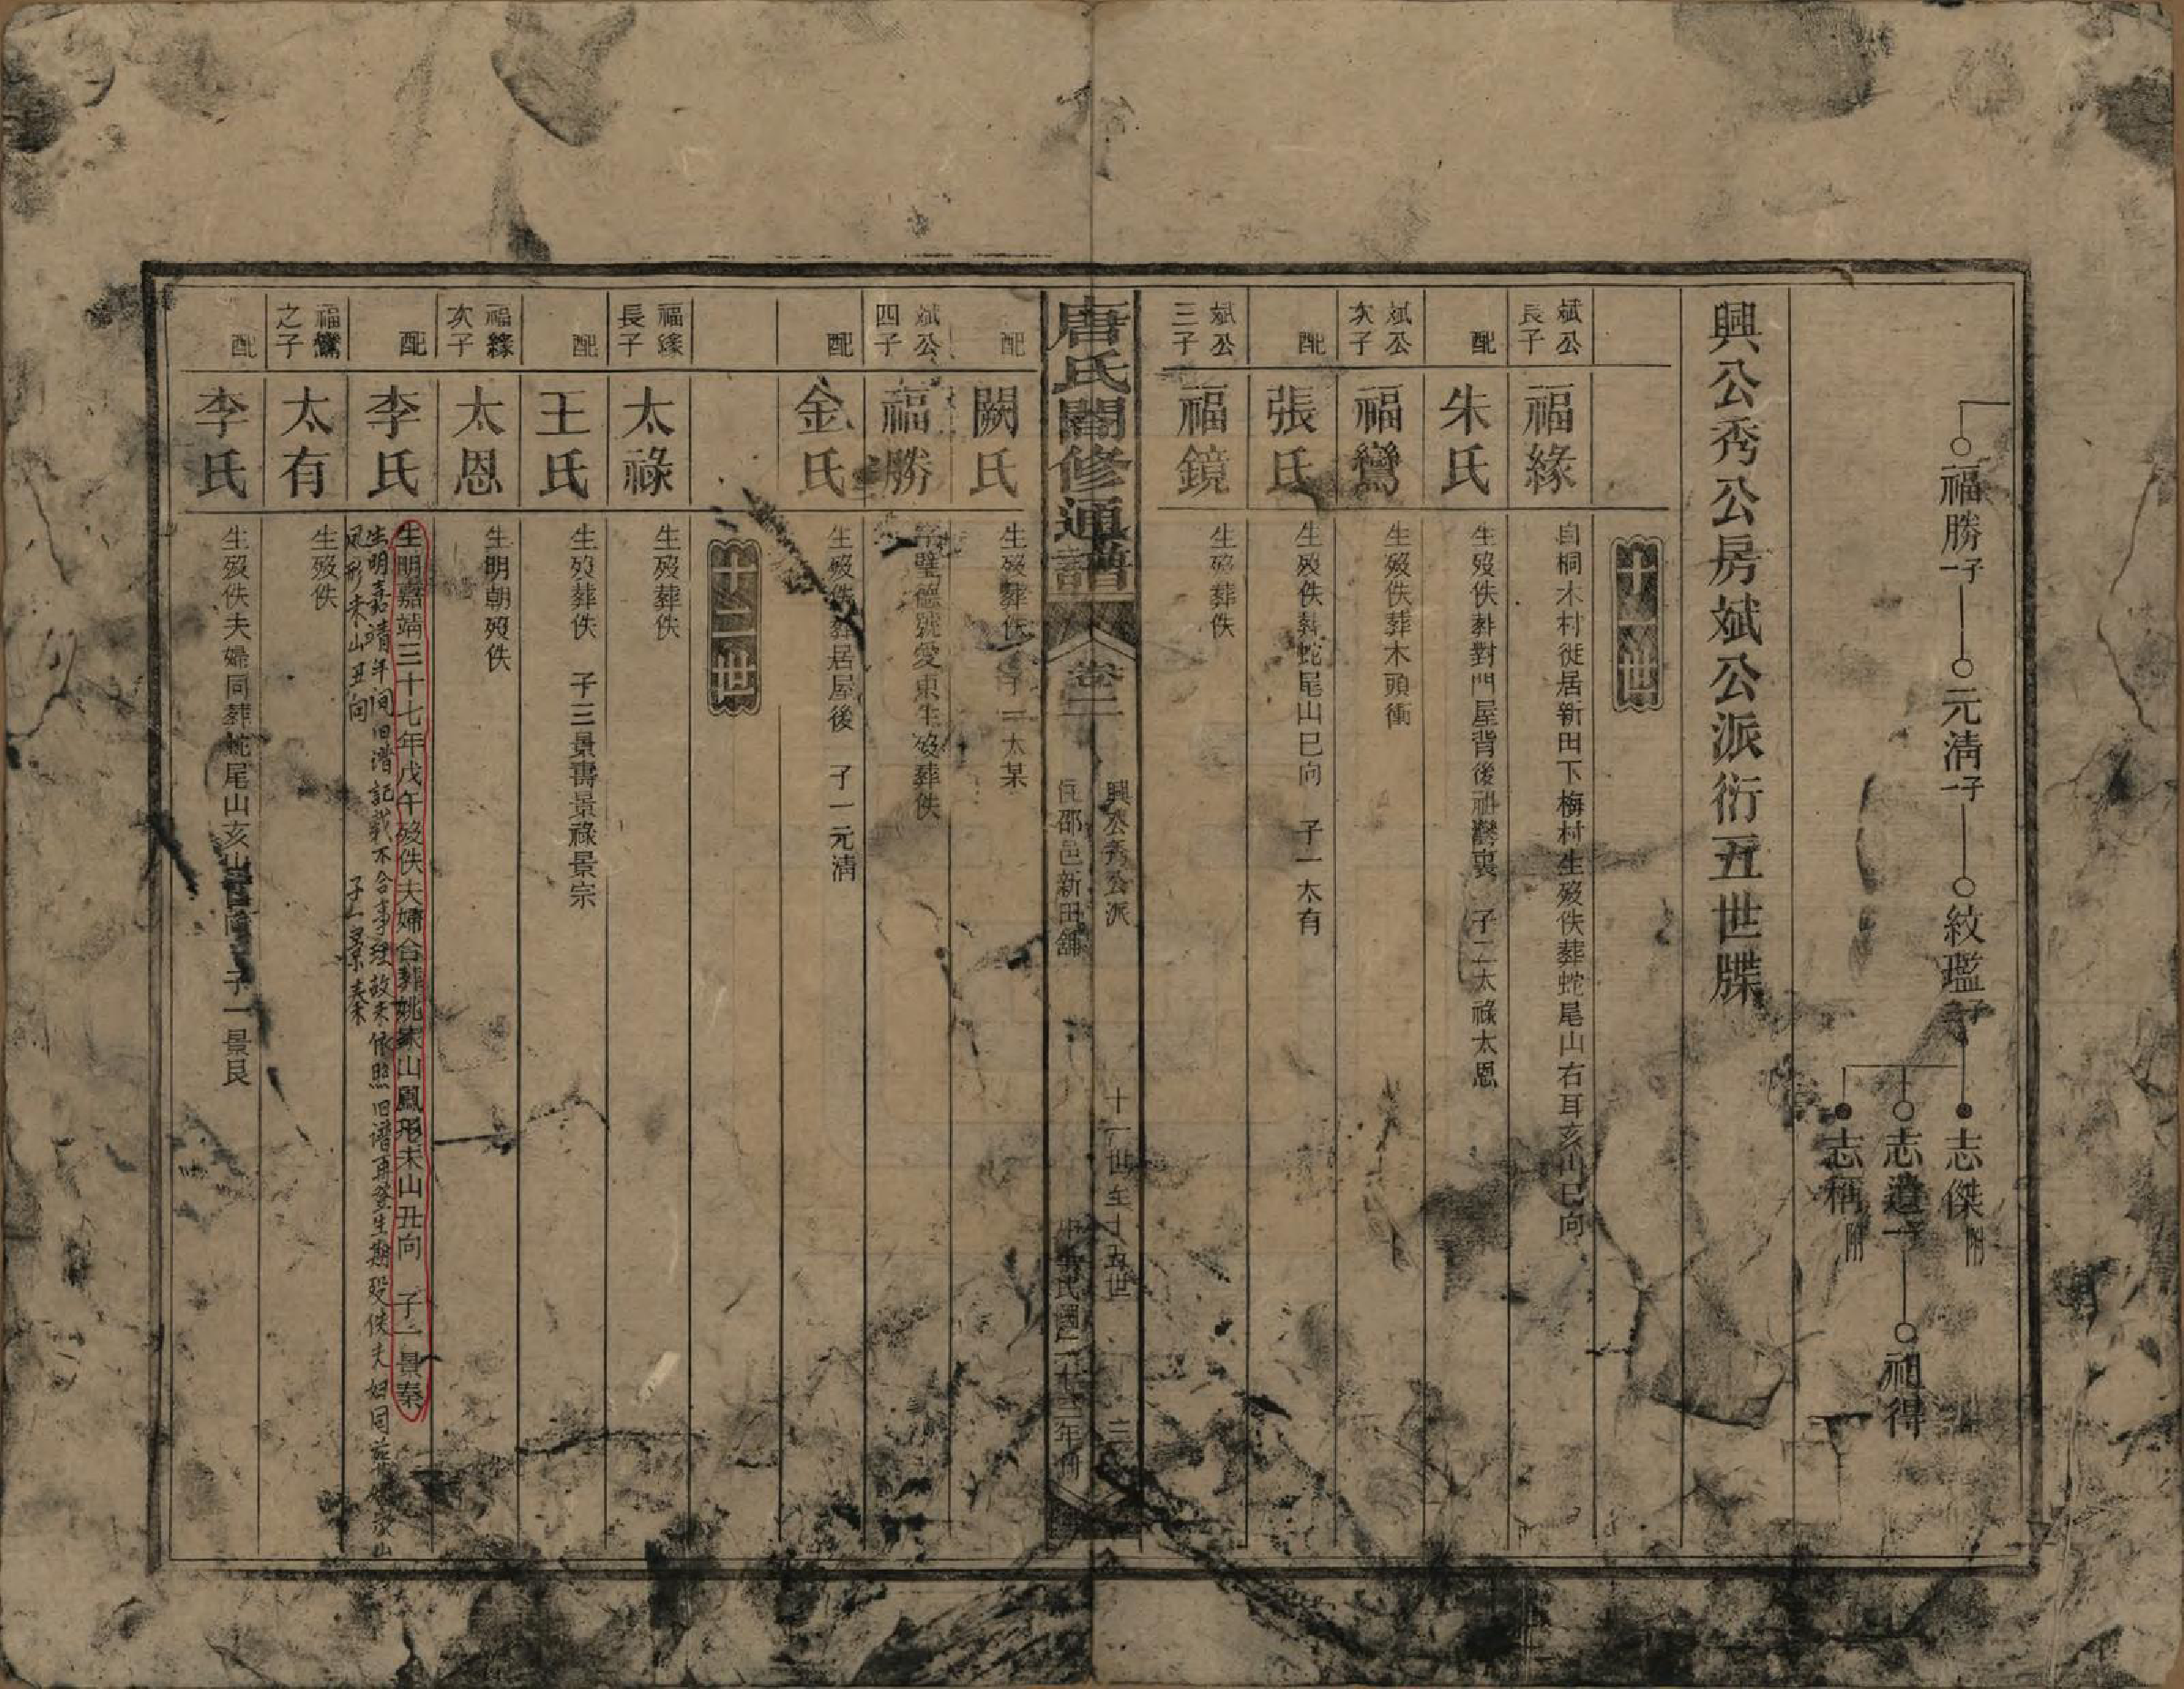 福勝子一 元清子一 紋瓛子三 志傑附
志遺子一 祖得
志稱附
興公秀公房斌公派衍五世牒
十一世
斌公長子 福緣 自桐木村徙居新田下梅村生歿佚葬蛇尾山右耳亥山巳向
配 朱氏 生歿佚葬對門屋背後 子二太祿太恩
斌公次子 福鸞 生歿佚葬木頭衝
配 張氏 生歿佚葬蛇尾山巳向 子一太有
斌公三子 福鏡 生歿葬佚
唐氏闔修通譜 卷二 興公秀公派 邵邑新田舖 十一世至十五世 三 中華民國三十三年
配 闕氏 生歿葬佚 子一太某
斌公四子 福勝 字璧德號愛東生歿葬佚
配 金氏 生歿佚葬居屋後 子一元清
十二世
福緣長子 太祿 生歿葬佚
配 王氏 生歿葬佚 子三景壽景祿景宗
福緣次子 太恩 生明朝歿佚
配 李氏 生明嘉靖三十七年戊午歿佚夫婦合葬姚家山鳳形未山丑向 子一景泰
生明嘉靖年间旧谱記载不合事理故未依照旧谱再登生期殁佚夫妇同葬姚家山
凤形未山丑向 子一景泰
福鸞之子 太有 生歿佚
配 李氏 生歿佚夫婦同葬蛇尾山亥山巳向 子一景良